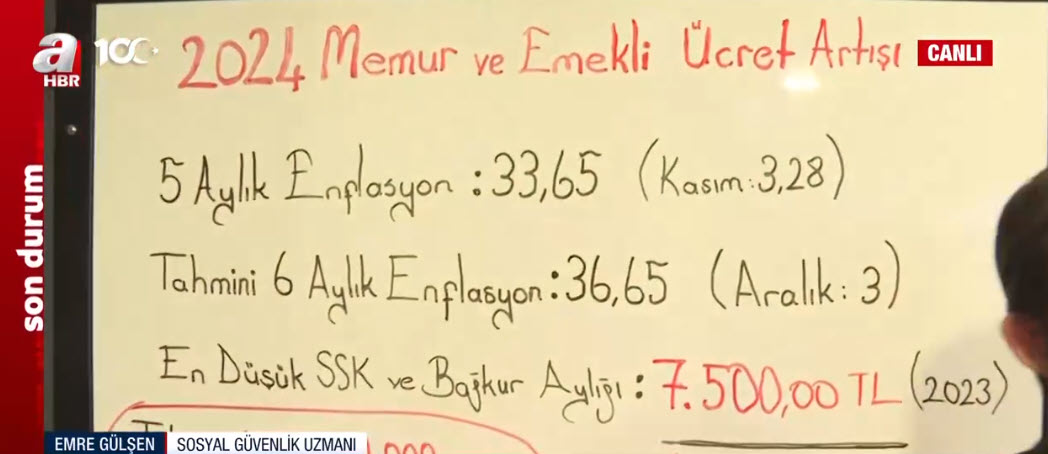 a
HBR
100
2024 Memur ve Emekli Ücret Artışı
CANLI
son durum
5 Aylık Enflasyon : 33,65 (Kasım: 3,28)
Tahmini 6 Aylık Enflasyon : 36,65 (Aralık: 3)
En Düşük SSK ve Bağkur Aylığı : 7.500,00 TL (2023)
EMRE GÜLŞEN SOSYAL GÜVENLİK UZMANI